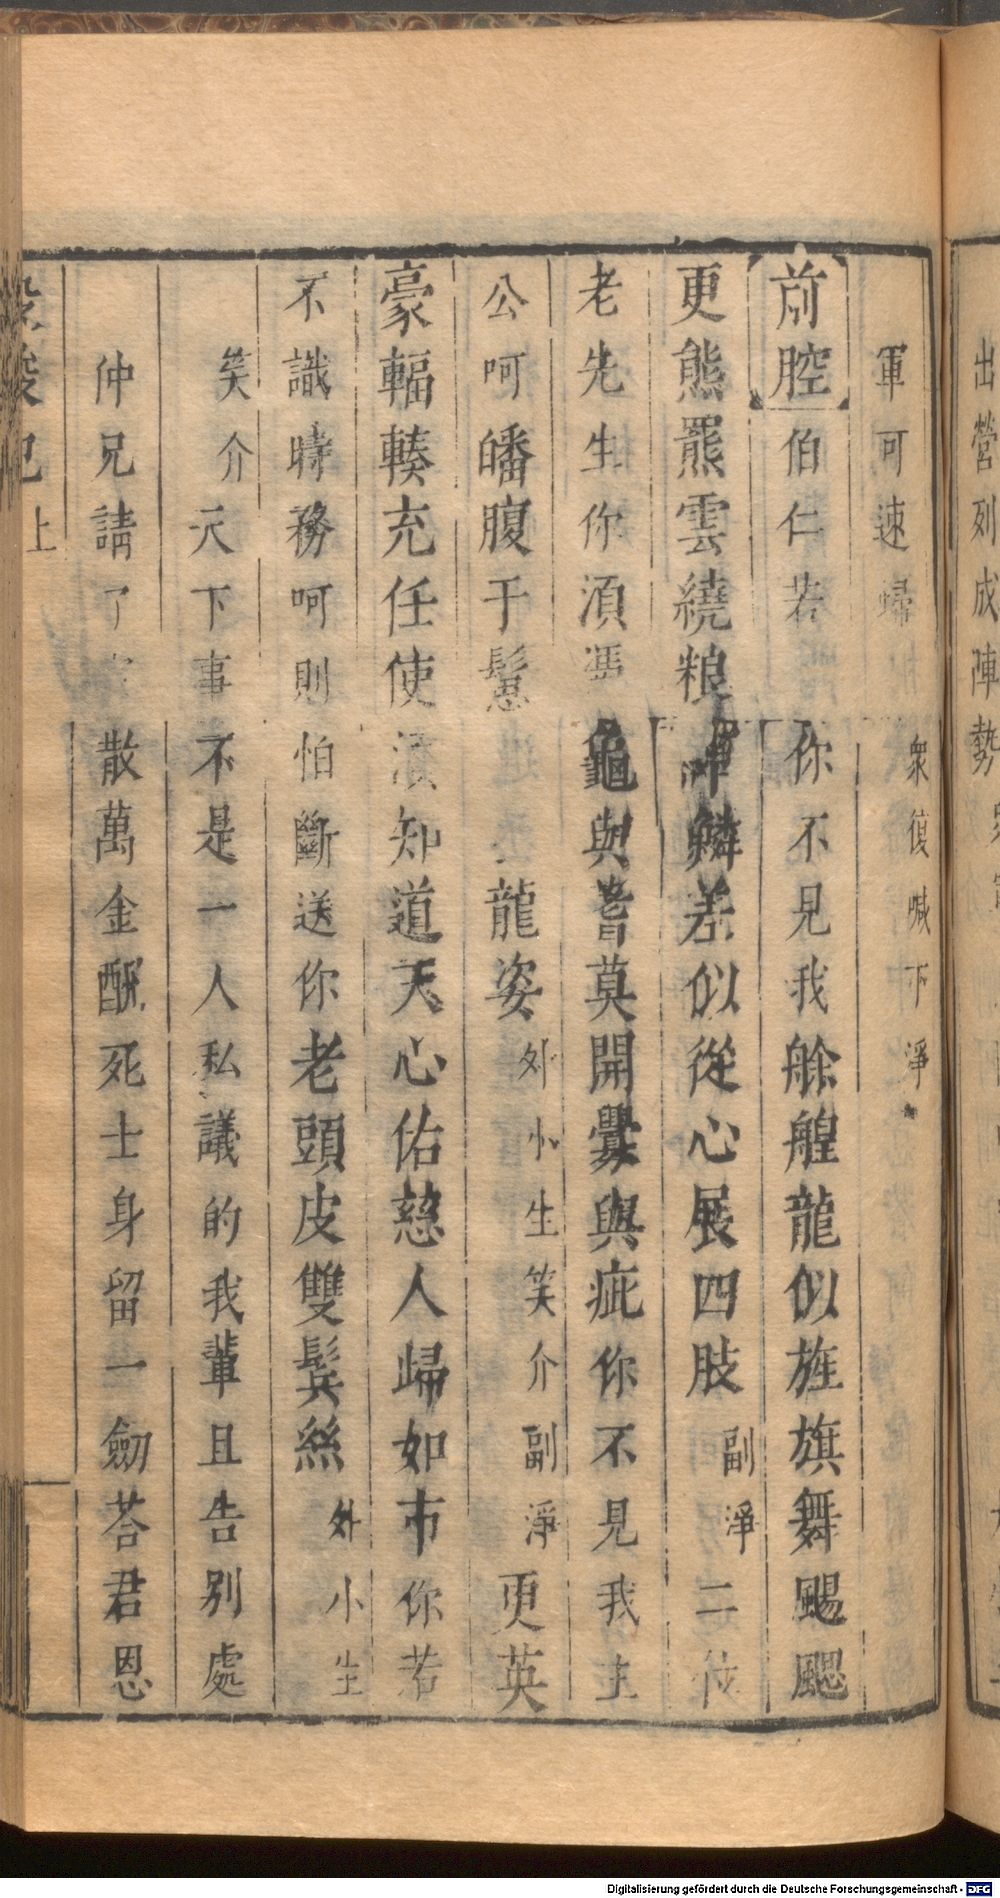 軍可速歸 衆復喊下淨
前腔 伯仁若 你不見我艅艎龍似旌旗舞颺颸
更熊羆雲繞粮 鱗差似從心展四肢 副淨 二位
老先生你須馮 龜與蓍莫開釁與疵你不見我主
公呵皤腹于鬆 龍姿 外小生笑介 副淨 更英
豪輻輳充任使 須知道天心佑慈人歸如市你若
不識時務呵則怕斷送你老頭皮雙鬂絲 外小生
笑介 天下事不是一人私議的我輩且告别處
仲兄請了 散萬金酬死士身留一劒荅君恩
上
出營列成陣勢
Digitalisierung gefördert durch die Deutsche Forschungsgemeinschaft - DFG